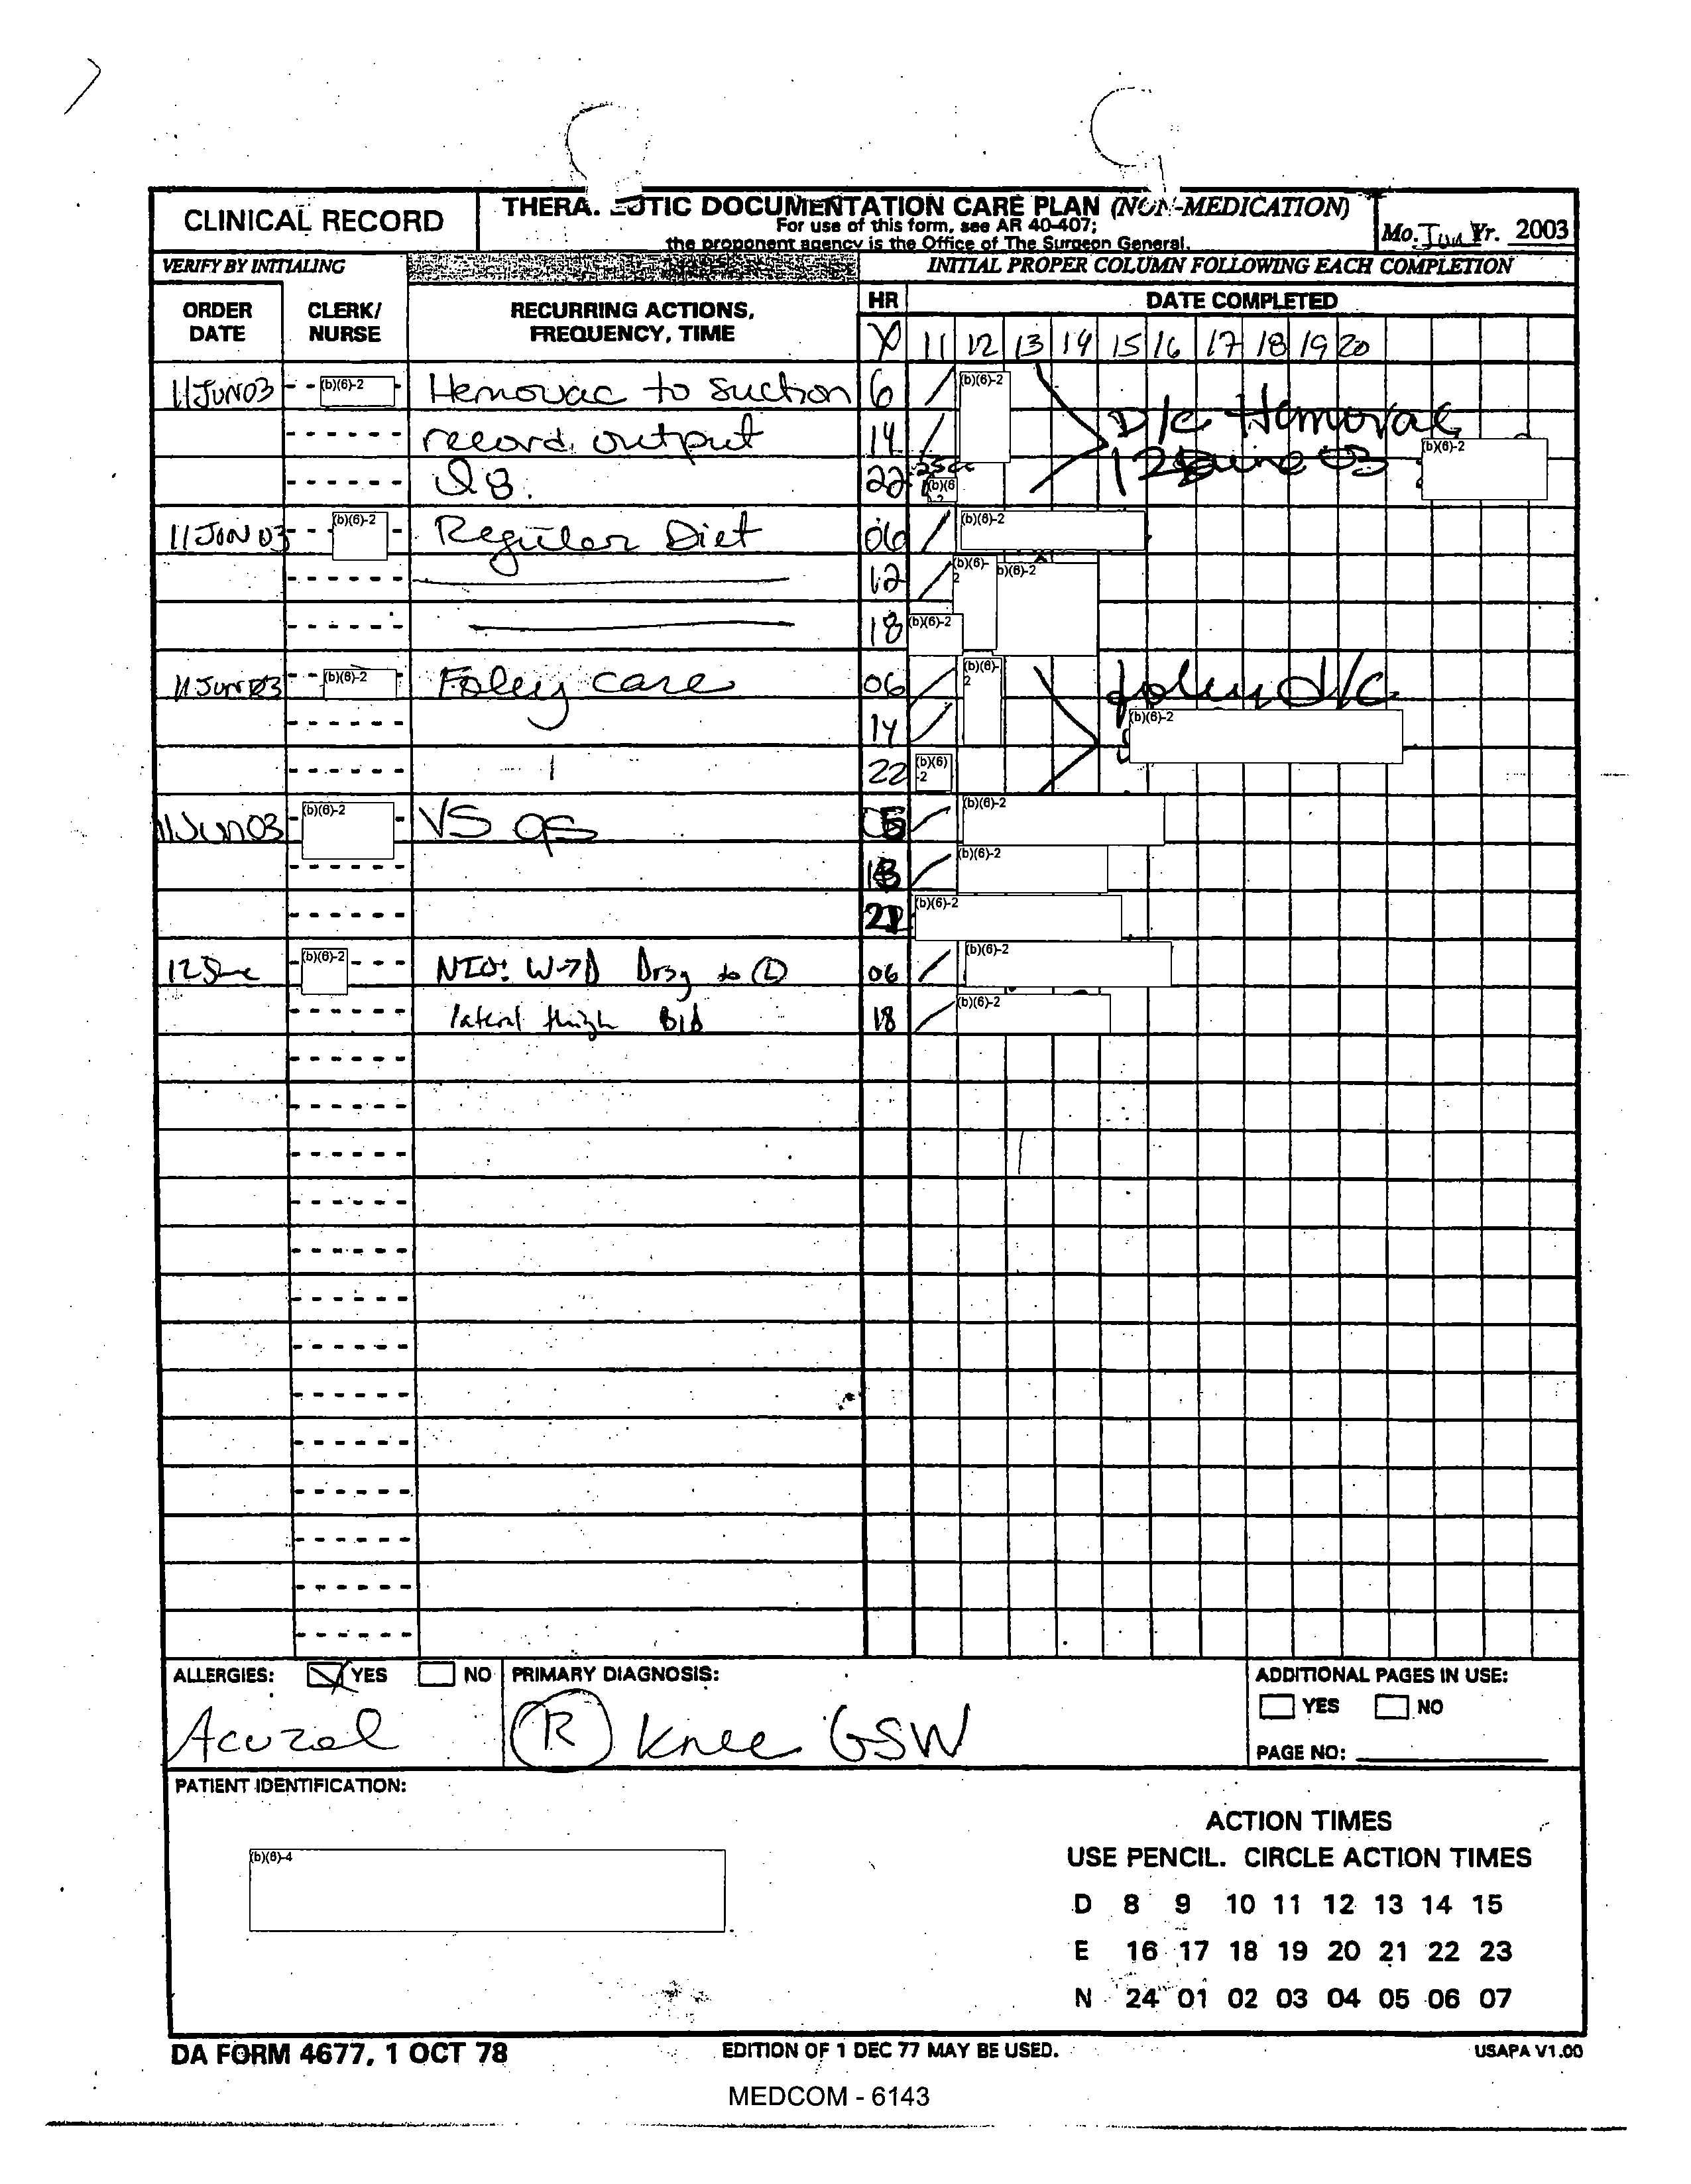 CLINICAL RECORD
THERA. EUTIC DOCUMENTATION CARE PLAN (NON-MEDICATION)
For use of this form, see AR 40-407;
the proponent agency is the Office of The Surgeon General.
Mo. Jun Yr. 2003
VERIFY BY INITIALING
INITIAL PROPER COLUMN FOLLOWING EACH COMPLETION
ORDER DATE
CLERK/ NURSE
RECURRING ACTIONS, FREQUENCY, TIME
HR
DATE COMPLETED
11 12 13 14 15 16 17 18 19 20
11 JUN 03 (b)(6)-2 Hemovac to suction 6 (b)(6)-2 D/c Hemovac
record output 14 12 June 03 (b)(6)-2
Q8. 22 (b)(6)-2
11 JUN 03 (b)(6)-2 Regular Diet 06 (b)(6)-2
12 (b)(6)-2 b)(6)-2
18 (b)(6)-2
11 JUN 03 (b)(6)-2 Foley care 06 (b)(6)-2 foley d/c
14 (b)(6)-2
22 (b)(6)-2
11 Jun 03 (b)(6)-2 VS qs (b)(6)-2
(b)(6)-2
(b)(6)-2
12 June (b)(6)-2 W→D Drsg to (L) 06 (b)(6)-2
lateral thigh BID 18 (b)(6)-2
ALLERGIES: YES NO
Acuzol
PRIMARY DIAGNOSIS:
(R) Knee GSW
ADDITIONAL PAGES IN USE:
YES NO
PAGE NO:
PATIENT IDENTIFICATION:
(b)(6)-4
ACTION TIMES
USE PENCIL. CIRCLE ACTION TIMES
D 8 9 10 11 12 13 14 15
E 16 17 18 19 20 21 22 23
N 24 01 02 03 04 05 06 07
DA FORM 4677, 1 OCT 78
EDITION OF 1 DEC 77 MAY BE USED.
USAPA V1.00
MEDCOM - 6143